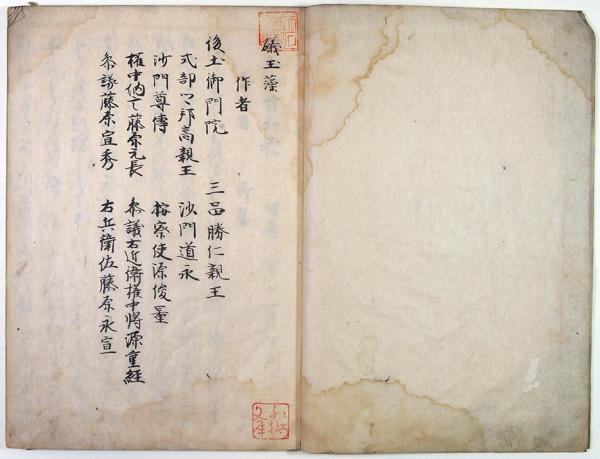 礒玉藻
作者
後土御門院　三品勝仁親王
式部卿邦高親王　沙門道永
沙門尊傳　按察使源俊量
權中納言藤原元長　参議右近衛權中將源重經
参議藤原宣秀　右兵衛佐藤原永宣
文庫